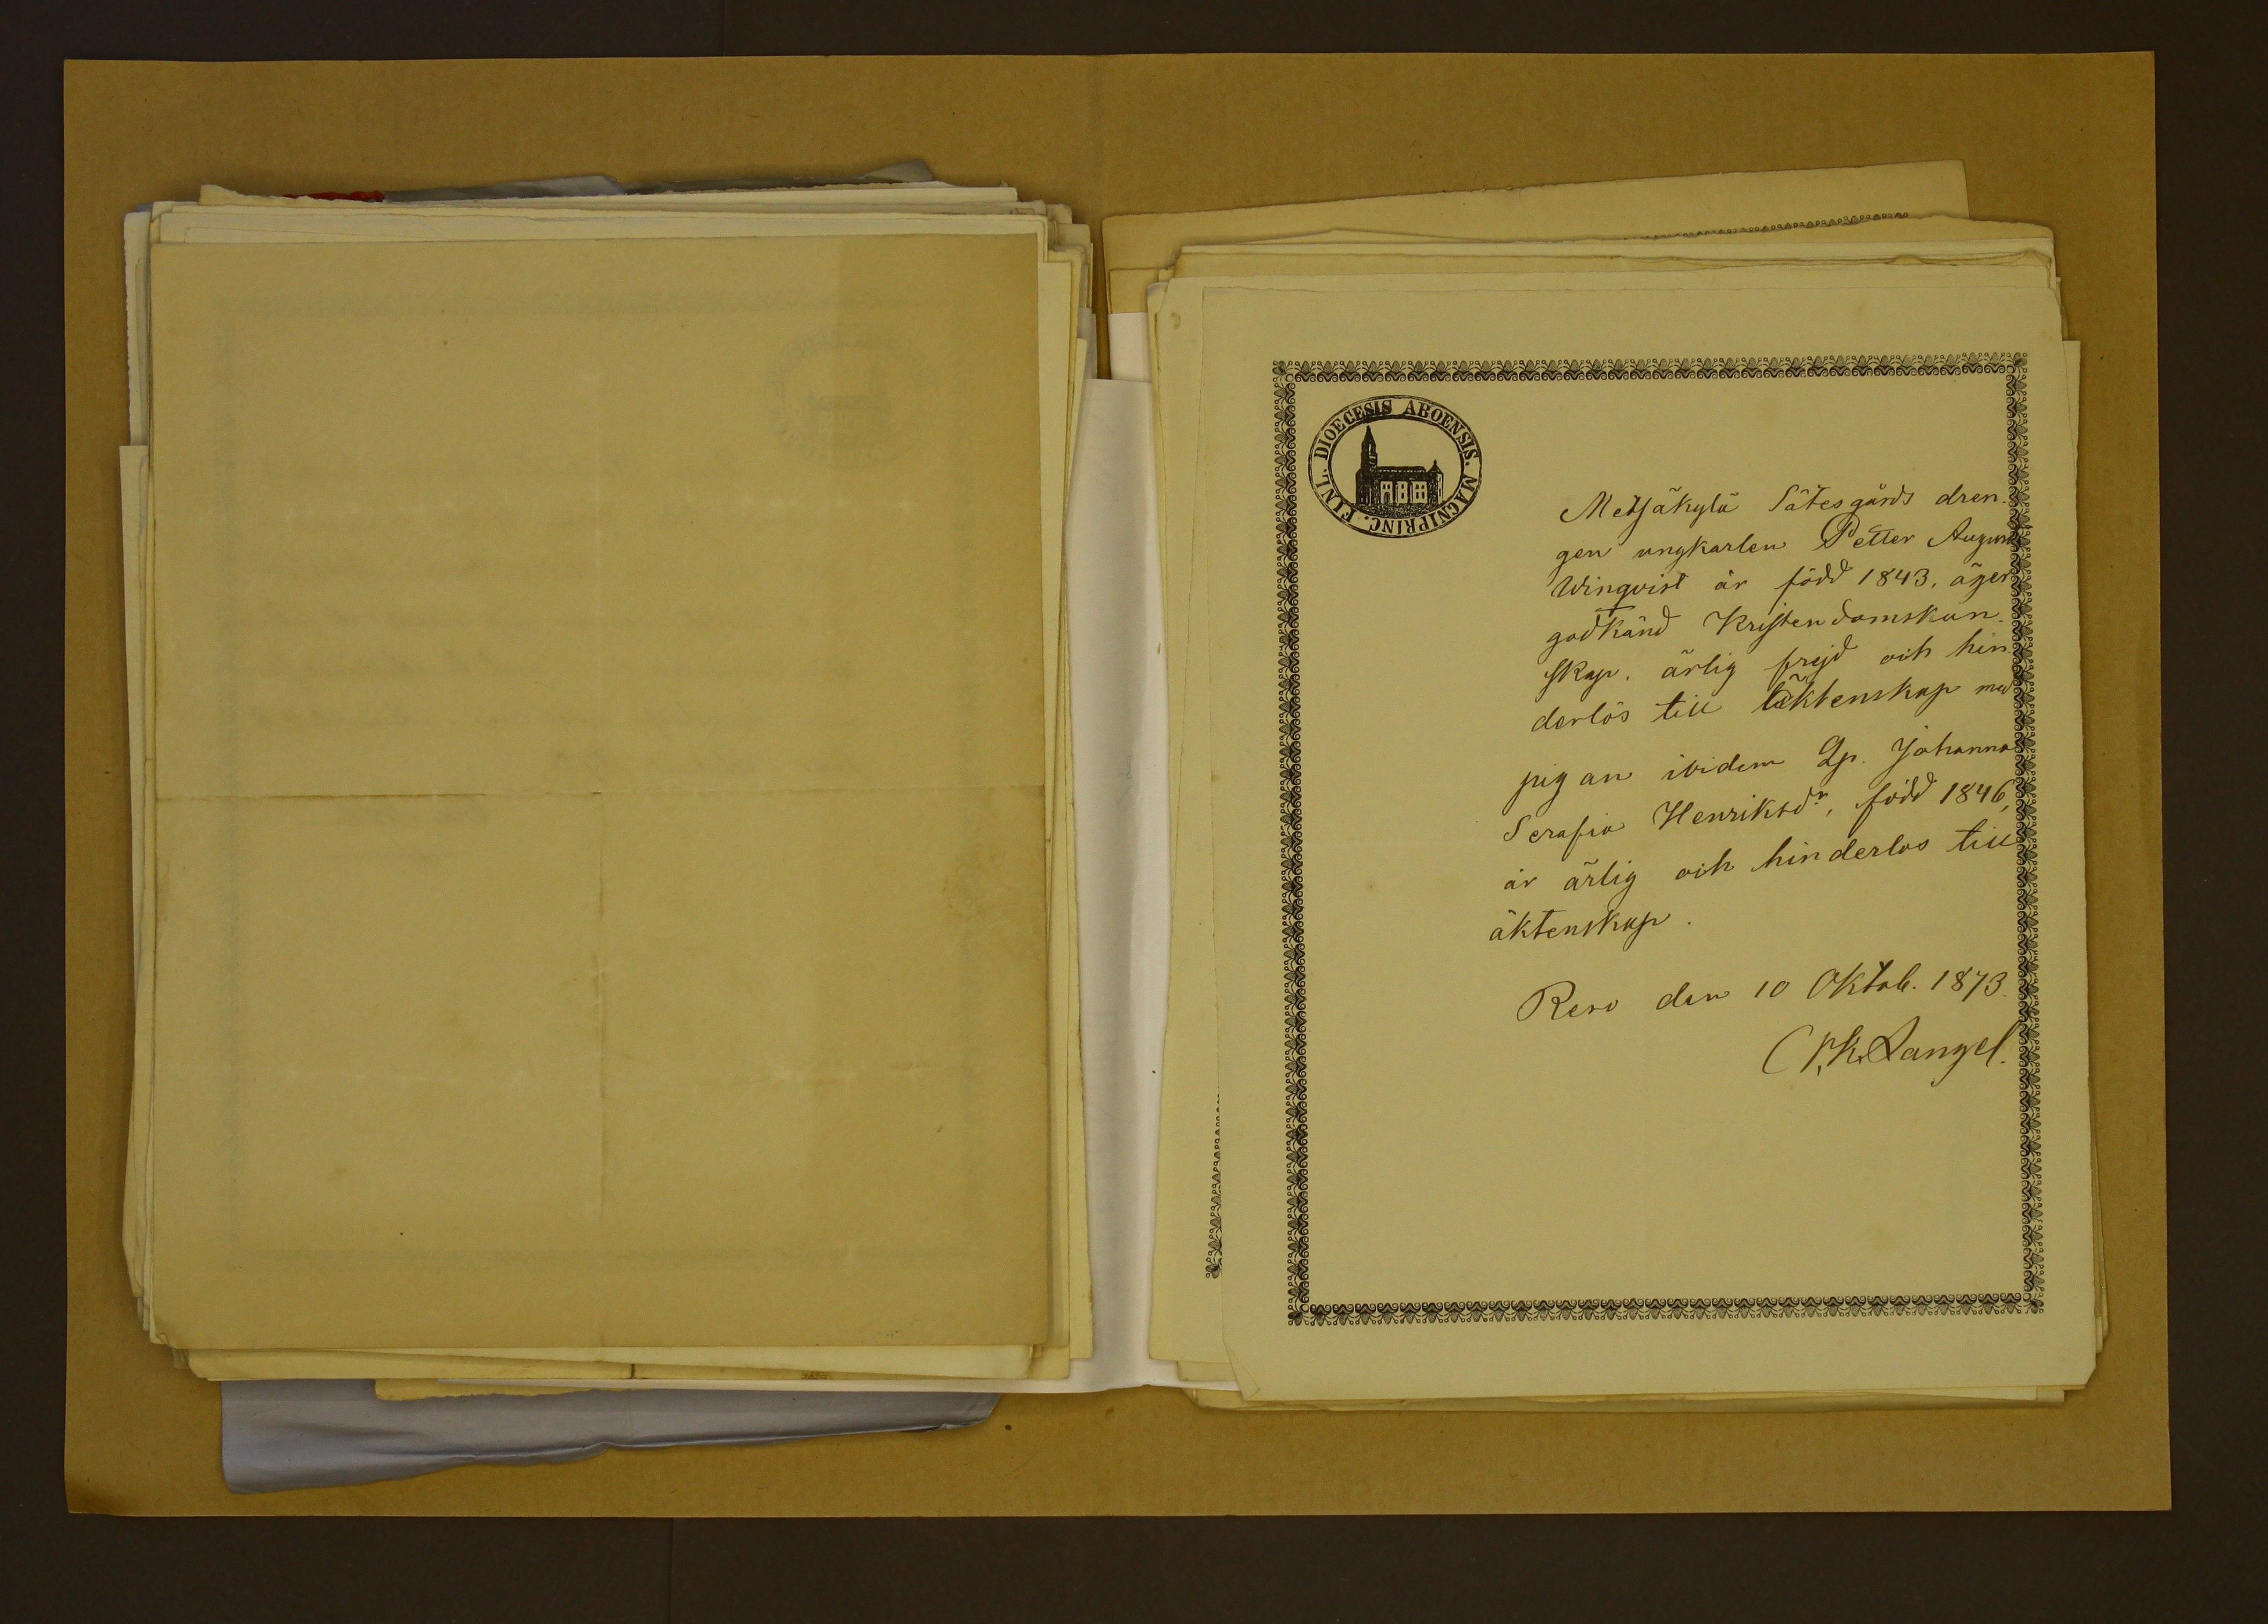 DIOECESIS ABOENSIS. MAGNIPRINC. FINL.
Metsäkylä Sätesgårds dren-
gen ungkarlen Petter August
Winqvist är född 1843, äger
godkänd Kristendomskun-
skap, ärlig frejd och hin-
derlös till äktenskap med
pigan ibidem Qp. Johanna
Serafia Henriksdr, född 1846,
är ärlig och hinderlos till
äktenskap.
Reso den 10 Oktob. 1873.
Langel.